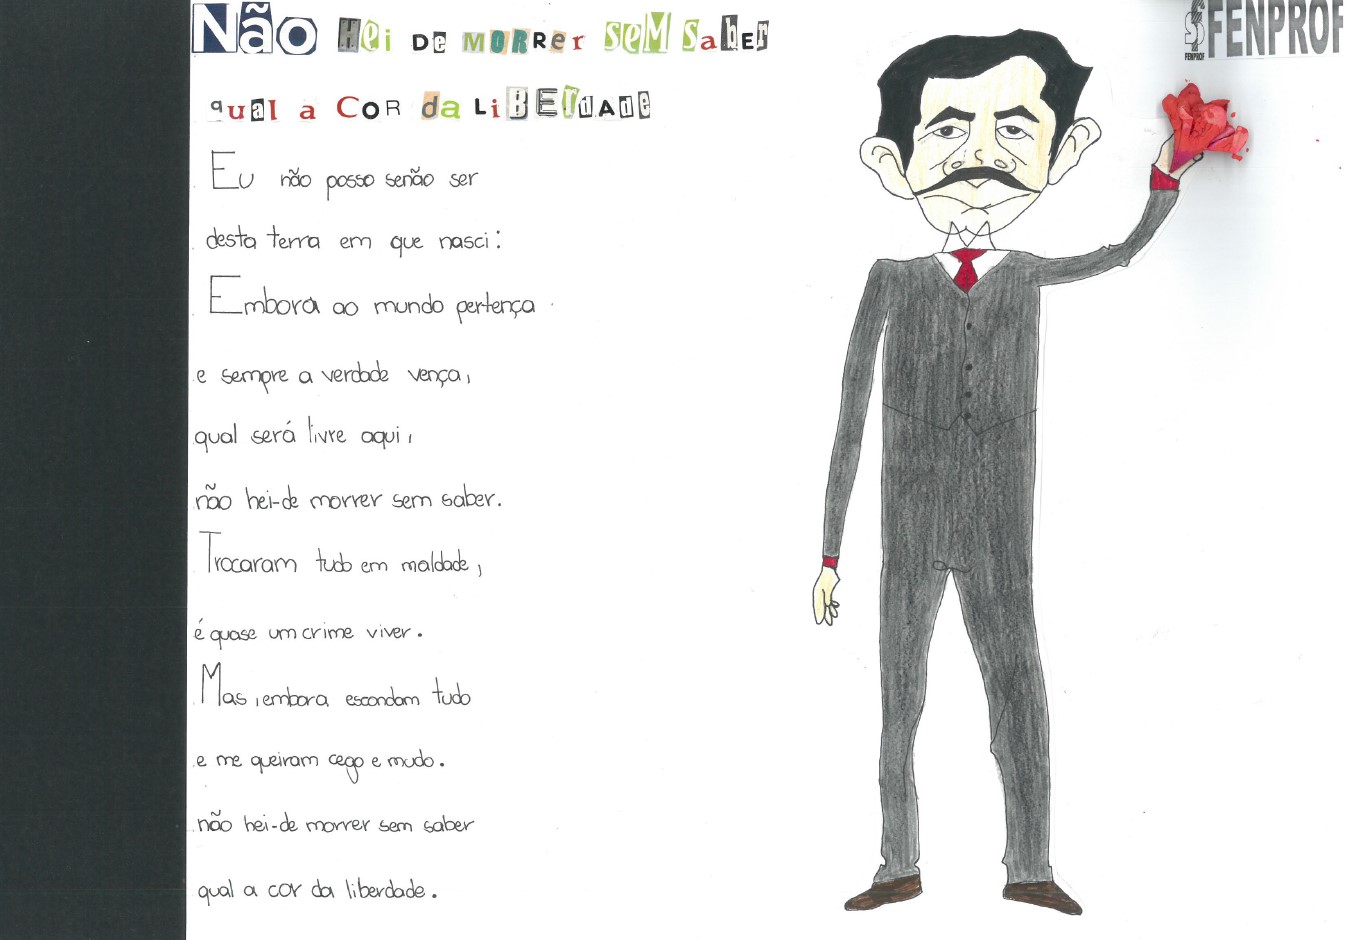 Não Hei De MORRer SeM SaberR
qual a COR da LiBERdADE
Eu não posso senão ser
desta terra em que nasci:
Embora ao mundo pertença
e sempre a verdade vença,
qual será livre aqui,
não hei-de morrer sem saber.
Trocaram tudo em maldade,
é quase um crime viver.
Mas, embora escondam tudo
e me queiram cego e mudo.
não hei-de morrer sem saber
qual a cor da liberdade.
FENPROF
FENPROF